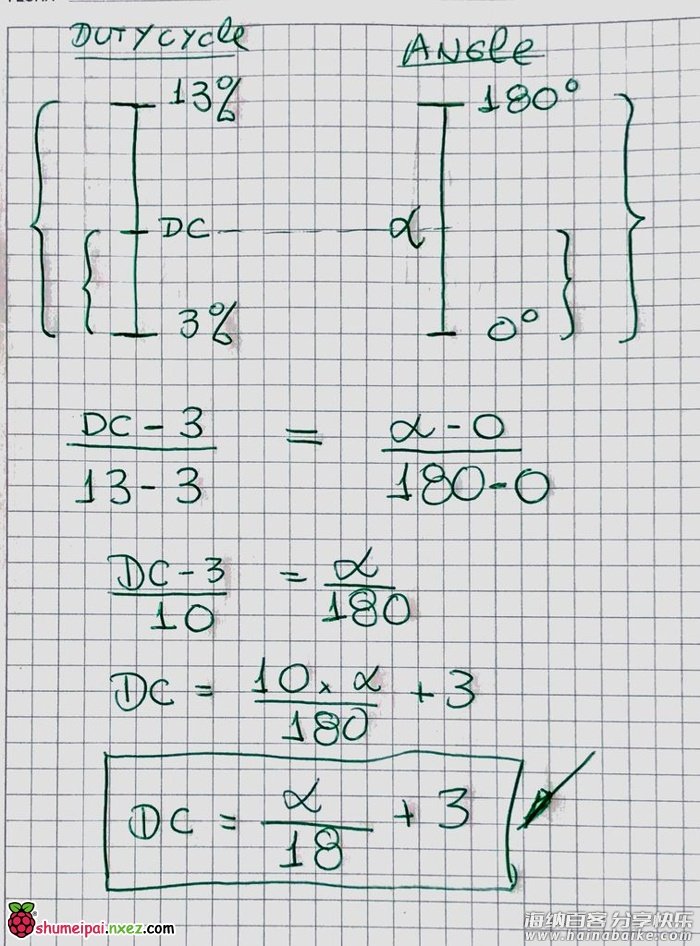 DUTYCYCLE ANGLE
13% 180°
DC α
3% 0°
DC - 3 / 13 - 3 = α - 0 / 180 - 0
DC - 3 / 10 = α / 180
DC = 10 × α / 180 + 3
DC = α / 18 + 3
shumeipai.nxez.com
海纳百客 分享快乐
www.hainabaike.com